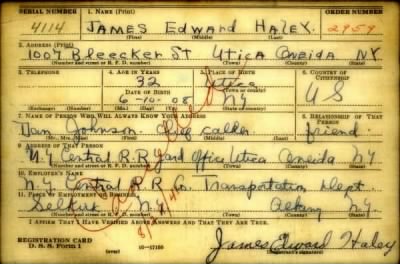 SERIAL NUMBER 1. NAME (Print) ORDER NUMBER
4114 JAMES Edward HALEY. 2959
(First) (Middle) (Last)
2. ADDRESS (Print)
1007 Bleecker St Utica Oneida NY
(Number and street or R. F. D. number) (Town) (County) (State)
3. TELEPHONE 4. AGE IN YEARS 5. PLACE OF BIRTH 6. COUNTRY OF CITIZENSHIP
32 Utica
DATE OF BIRTH (Town or county)
6-10-08 NY U S
(Exchange) (Number) (Mo.) (Day) (Yr.) (State or country)
7. NAME OF PERSON WHO WILL ALWAYS KNOW YOUR ADDRESS 8. RELATIONSHIP OF THAT PERSON
Dan Johnson. Chief caller friend.
(Mr., Mrs., Miss) (First) (Middle) (Last)
9. ADDRESS OF THAT PERSON
N.Y. Central R.R. Yard Office Utica Oneida NY
(Number and street or R. F. D. number) (Town) (County) (State)
10. EMPLOYER'S NAME
N.Y. Central R.R. Co. Transportation Dept.
11. PLACE OF EMPLOYMENT OR BUSINESS
Selkirk N.Y. Albany NY
(Number and street or R. F. D. number) (Town) (County) (State)
I AFFIRM THAT I HAVE VERIFIED ABOVE ANSWERS AND THAT THEY ARE TRUE.
REGISTRATION CARD
D. S. S. Form 1 16-17105 James Edward Haley
Cancelled